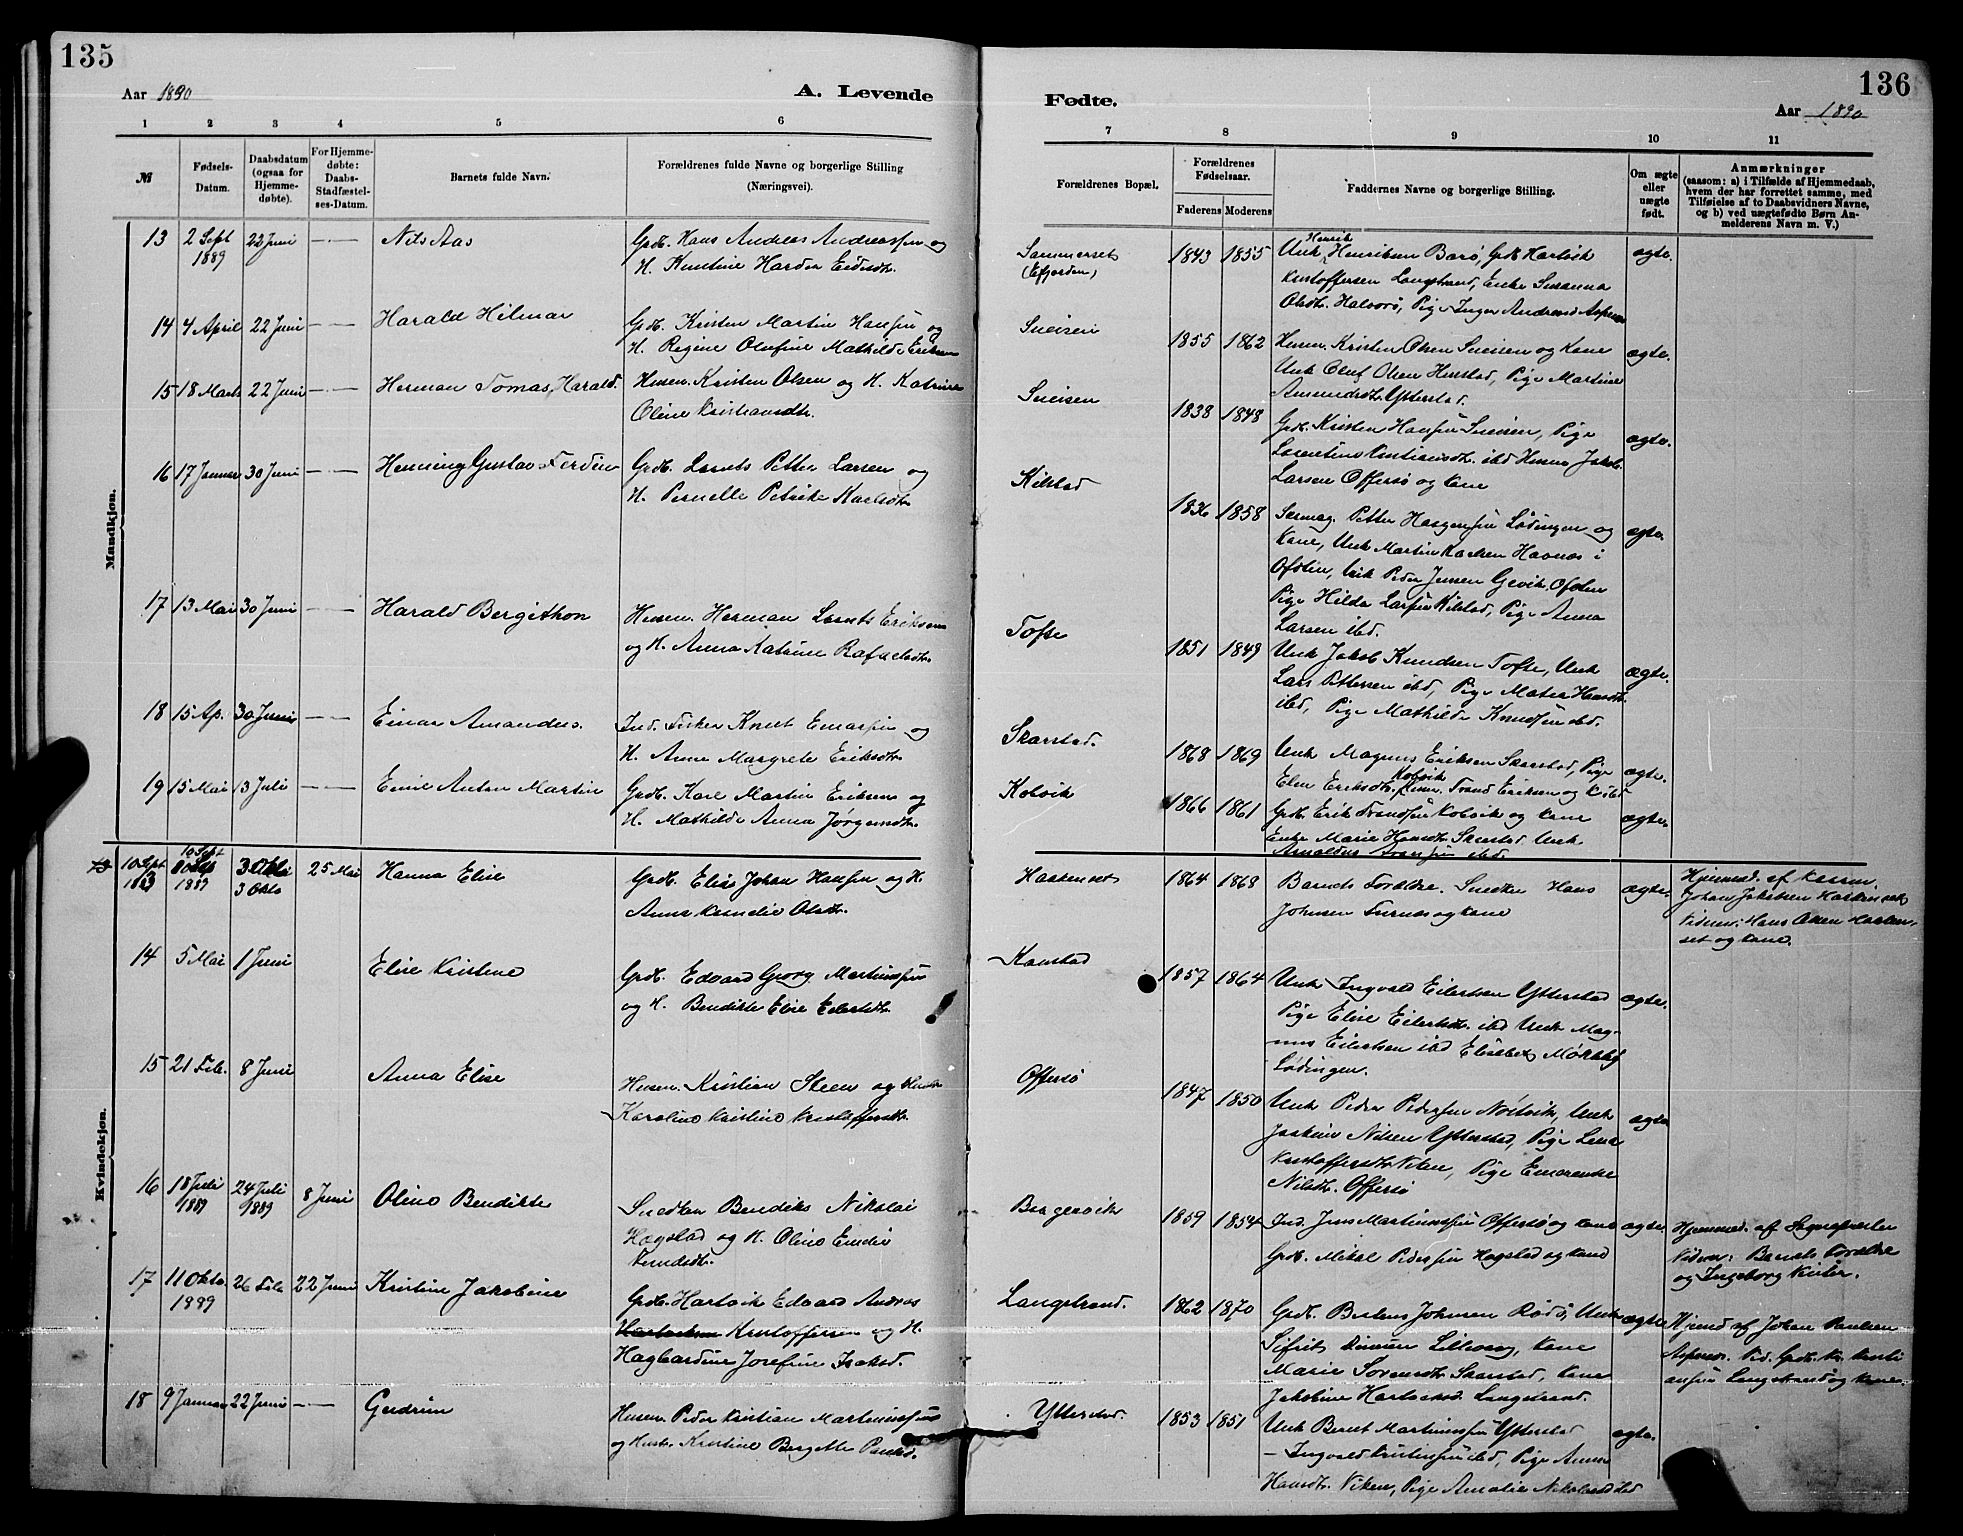 135
Aar 1890
A. Levende
1 2 3 4 5 6
№
Fødsels-Datum.
Daabsdatum (ogsaa for Hjemmedøbte).
For Hjemmedøbte: Daabs-Stadfæstelses-Datum.
Barnets fulde Navn.
Forældrenes fulde Navne og borgerlige Stilling (Næringsvei).
Mandkjøn.
13 2 Sept 1889 22 Juni — Nils Aas
Grdb. Hans Andreas Andreassen og
H. Hardea
14 4 April 22 Juni — Harald Hilmar
Grdb. Kristen Martin Hansen og
H. Regine Olufine Mathilde Eriksen
15 18 Marts 22 Juni — Herman Tomas Harald.
Husm. Kristen Olsen og H. Katrine
Oline Kristiansdtr.
16 17 Januar 30 Juni — Henning Gustav Ferdin
Grdb. Lornts Petter Larsen og
H. Pernelle Petrike Karlsdtr
17 13 Mai 30 Juni — Harald Bergithon
Husm. Herman Lornts Eriksen
og H. Anna Katrine Rafaelsdtr.
18 15 Ap. 30 Juni — Einar Amandus.
Ind. Fisker Knut Einarsen og
H. Anne Margrete Eriksdtr.
19 15 Mai 13 Juli — Emil Anton Martin
Grdb. Karl Martin Eriksen og
H. Mathilde Anna Jørgensdtr.
Kvindekjøn.
13 10 Sept 1889 3 Okto 25 Mai Hanna Elise
Grdb. Elias Johan Hansen og H.
Anne Kornelie Olsdtr.
14 5 Mai 1 Juni Elise Kristine
Grdb. Edvard Georg Martinussen
og H. Bendikte Elise Eilertsdtr.
15 21 Feb. 8 Juni Anna Elise
Husm. Kristian Steen og Hustr
Karoline Kristine Kristoffersdtr.
16 18 Juli 1889 24 Juli 1889 8 Juni Oline Bendikte
Snedker Bendiks Nikolai
Hagstad og H. Oline Emelie
17 11 Okto. 1889 26 Feb 22 Juni Kristine Jakobine
Grdb. Hartvik Edvard Andreas
Kristoffersen og H.
Hagbardine Josefine Isaksd.
18 9 Januar 22 Juni — Gudrun
Husm. Peder Kristian Martinussen
og Hustr. Kristine Bergitte Paulsd.
136
Fødte.
Aar 1890
7 8 9 10 11
Forældrenes Bopæl.
Forældrenes Fødselsaar.
Faderens Moderens
Faddernes Navne og borgerlige Stilling.
Om ægte eller uægte født.
Anmærkninger
(saasom: a) i Tilfælde af Hjemmedaab, hvem der har forrettet samme, med Tilføielse af to Daabsvidners Navne, og b) ved uægtefødte Børn Anmelderens Navn m. V.)
Sammerset (Efjorden) 1843 1855
Unk. Henrik Henriksen Barø, Grdb Hartvik
Kristoffersen Langstrand, Enke Susanna
Olsdtr. Halvorsø, Pige Inger Andreasd Aspenes
ægte.
Sneisen 1855 1862
Husm. Kristen Olsen Sneisen og Kone
Unk Oluf Olsen Hustad, Pige Martine
Amundsdtr. Ytterstad.
ægte.
Sneisen 1838 1848
Grdb. Kristen Hansen Sneisen, Pige
Lorentine Kristiansdtr. ibd Husm Jakob
Larsen Offersø og Kone
ægte.
Kilstad 1836 1858
Petter Haagensen Lødingen og
Kone, Unk Martin Karlsen Havnes i
Ofoten, Unk Peder Jensen Gevik, Ofoten
Pige Hilda Larsen Kilstad, Pige Anna
Larsen ibd.
ægte.
Tofte 1851 1849
Unk Jakob Knudsen Tofte, Unk
Lars Pettersen ibd, Pige Matea Hansdtr.
ibd, Pige Mathilde Knudsen ibd.
ægte.
Skarstad. 1868 1869
Unk Magnus Eriksen Skarstad, Pige
Elen Eriksdtr. Kobvik, Husm. Trond Eriksen og K ibd
ægte.
Kobvik 1866 1861
Grdb. Erik Trondsen Kobvik og Kone
Enke Marie Hansdtr. Skarstad Unk
Arnoldus Tronsen ibd.
ægte.
Haakenset 1864 1868
Barnets Forældre. Snedker Hans
Johnsen Furnes og Kone
ægte.
Hjemmed. af Kassem.
Johan Jakobsen Haakenset
Vidner: Hans Olsen Haaken-
set og Kone.
Kanstad 1857 1864
Unk Ingvald Eilertsen Ytterstad
Pige Elise Eilertsdtr. ibd Unk Mag-
nus Eilertsen ibd Elisabet Mørkby
Lødingen.
ægte.
Offersø 1847 1850
Unk Peder Pedersen Nøitvik, Unk
Joakim Nilsen Ytterstad, Pige Lina
Kristoffersdtr. Viken, Pige Emerense
Nilsdtr. Offersø
ægte
Borgervik 1859 1854
Ind. Jens Martinussen Offersø og Kone
Grdb. Mikal Pedersen Hagstad og Kone
ægte
Hjemmed. af Sogneprester
Vidner: Barnets Forældre
og Ingeborg
Langstrand. 1862 1870
Grdb. Bertens Johnsen Rødø, Unk
Sifrit Lillevaag, Kone
Marie Sørensdtr. Skarstad, Kone
Jakobine Hartviksd. Langstrand.
ægte
Hjemd af Johan Paulsen
Aspenes. Vid. Grdb. Kr. Kristi
ansen Langstrand og Kone.
Ytterstad. 1853 1851
Unk Bernt Martinussen Ytterstad
— Ingvald Kristensen ibd, Pige Anna
Hansdtr. Viken, Pige Amalie Nikolaisd ibd
ægte.